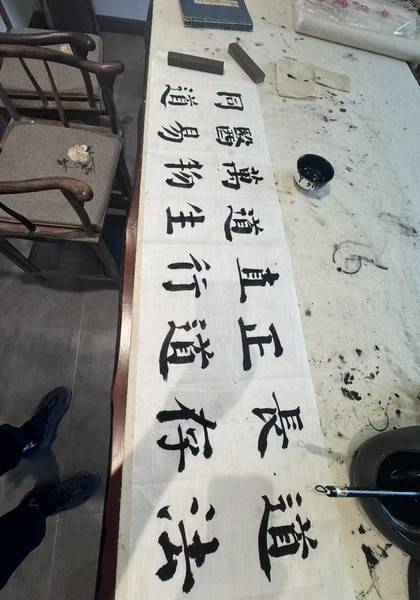 道法
長存
正道
直行
道生
萬物
醫易
同道